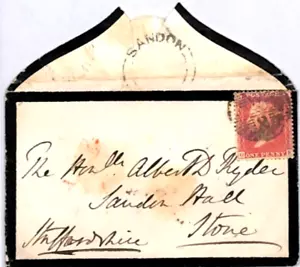 SANDON
POSTAGE
ONE PENNY
The Honble Albert D Ryder
Sandon Hall
Stone
Staffordshire